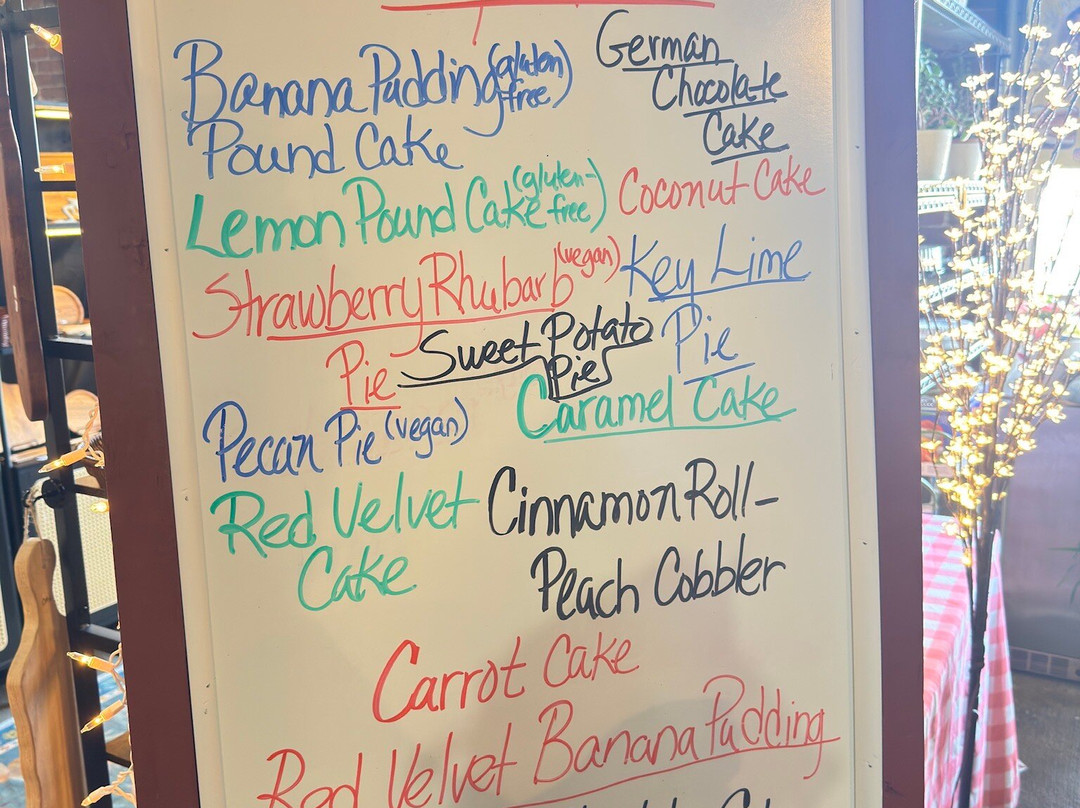 Banana Pudding (gluten free)
Pound Cake
German
Chocolate
Cake
Lemon Pound Cake (gluten-free)
Coconut Cake
Strawberry Rhubarb (vegan)
Pie
Key Lime
Pie
Sweet Potato
Pie
Pecan Pie (vegan)
Caramel Cake
Red Velvet
Cake
Cinnamon Roll-
Peach Cobbler
Carrot Cake
Red Velvet Banana Pudding